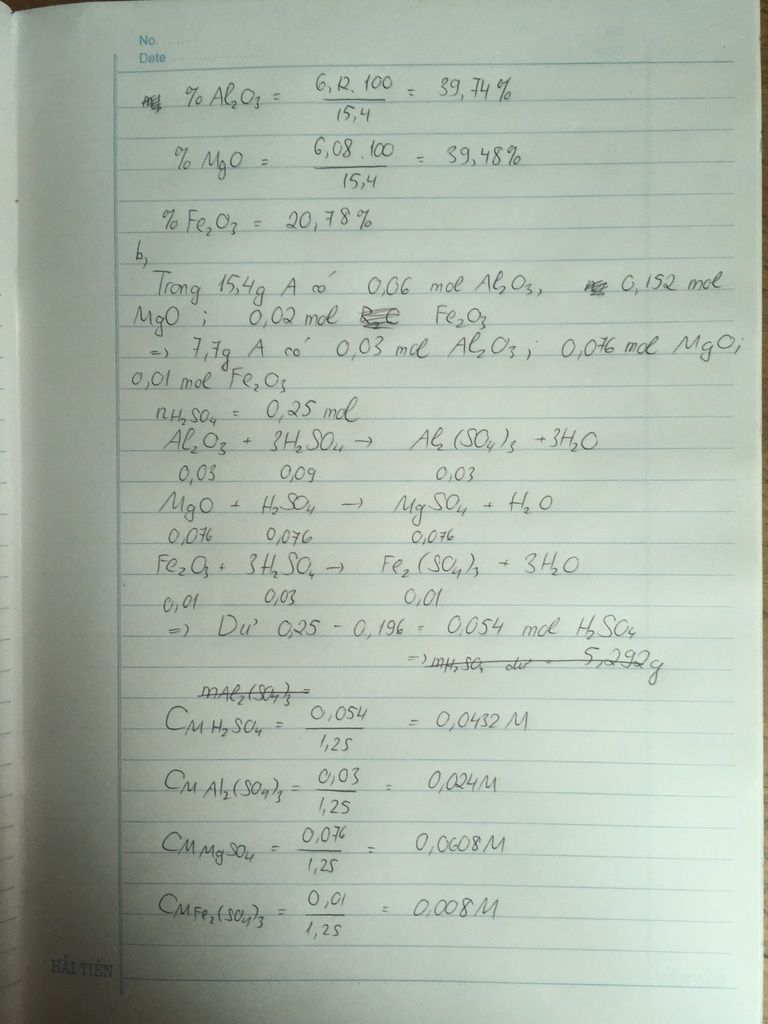 No. ..........
Date ....................
% Al₂O₃ = 6,12.100 / 15,4 = 39,74%
% MgO = 6,08.100 / 15,4 = 39,48%
% Fe₂O₃ = 20,78%
b,
Trong 15,4g A có 0,06 mol Al₂O₃, 0,152 mol
MgO ; 0,02 mol Fe₂O₃
=> 7,7g A có 0,03 mol Al₂O₃ ; 0,076 mol MgO;
0,01 mol Fe₂O₃
nH₂SO₄ = 0,25 mol
Al₂O₃ + 3H₂SO₄ → Al₂(SO₄)₃ + 3H₂O
0,03 0,09 0,03
MgO + H₂SO₄ → MgSO₄ + H₂O
0,076 0,076 0,076
Fe₂O₃ + 3H₂SO₄ → Fe₂(SO₄)₃ + 3H₂O
0,01 0,03 0,01
=> Dư 0,25 - 0,196 = 0,054 mol H₂SO₄
=> mH₂SO₄ dư = 5,292g
mAl₂(SO₄)₃ =
CM H₂SO₄ = 0,054 / 1,25 = 0,0432 M
CM Al₂(SO₄)₃ = 0,03 / 1,25 = 0,024M
CM MgSO₄ = 0,076 / 1,25 = 0,0608M
CM Fe₂(SO₄)₃ = 0,01 / 1,25 = 0,008M
HẢI TIẾN